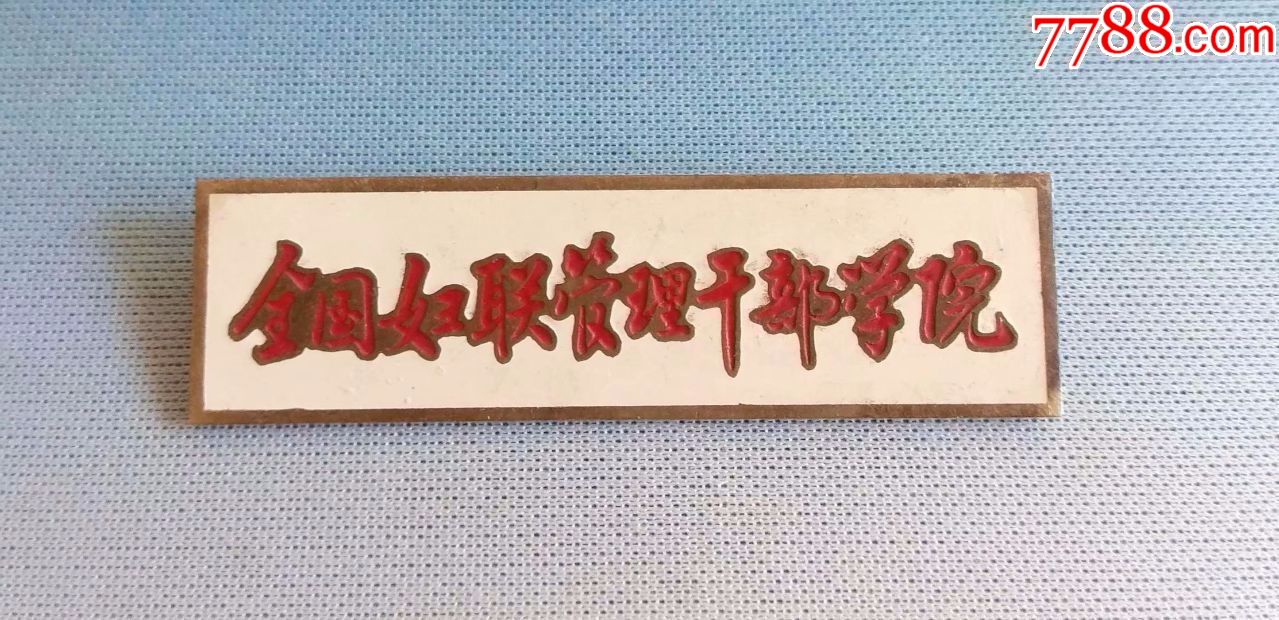 7788.com
全国妇联管理干部学院